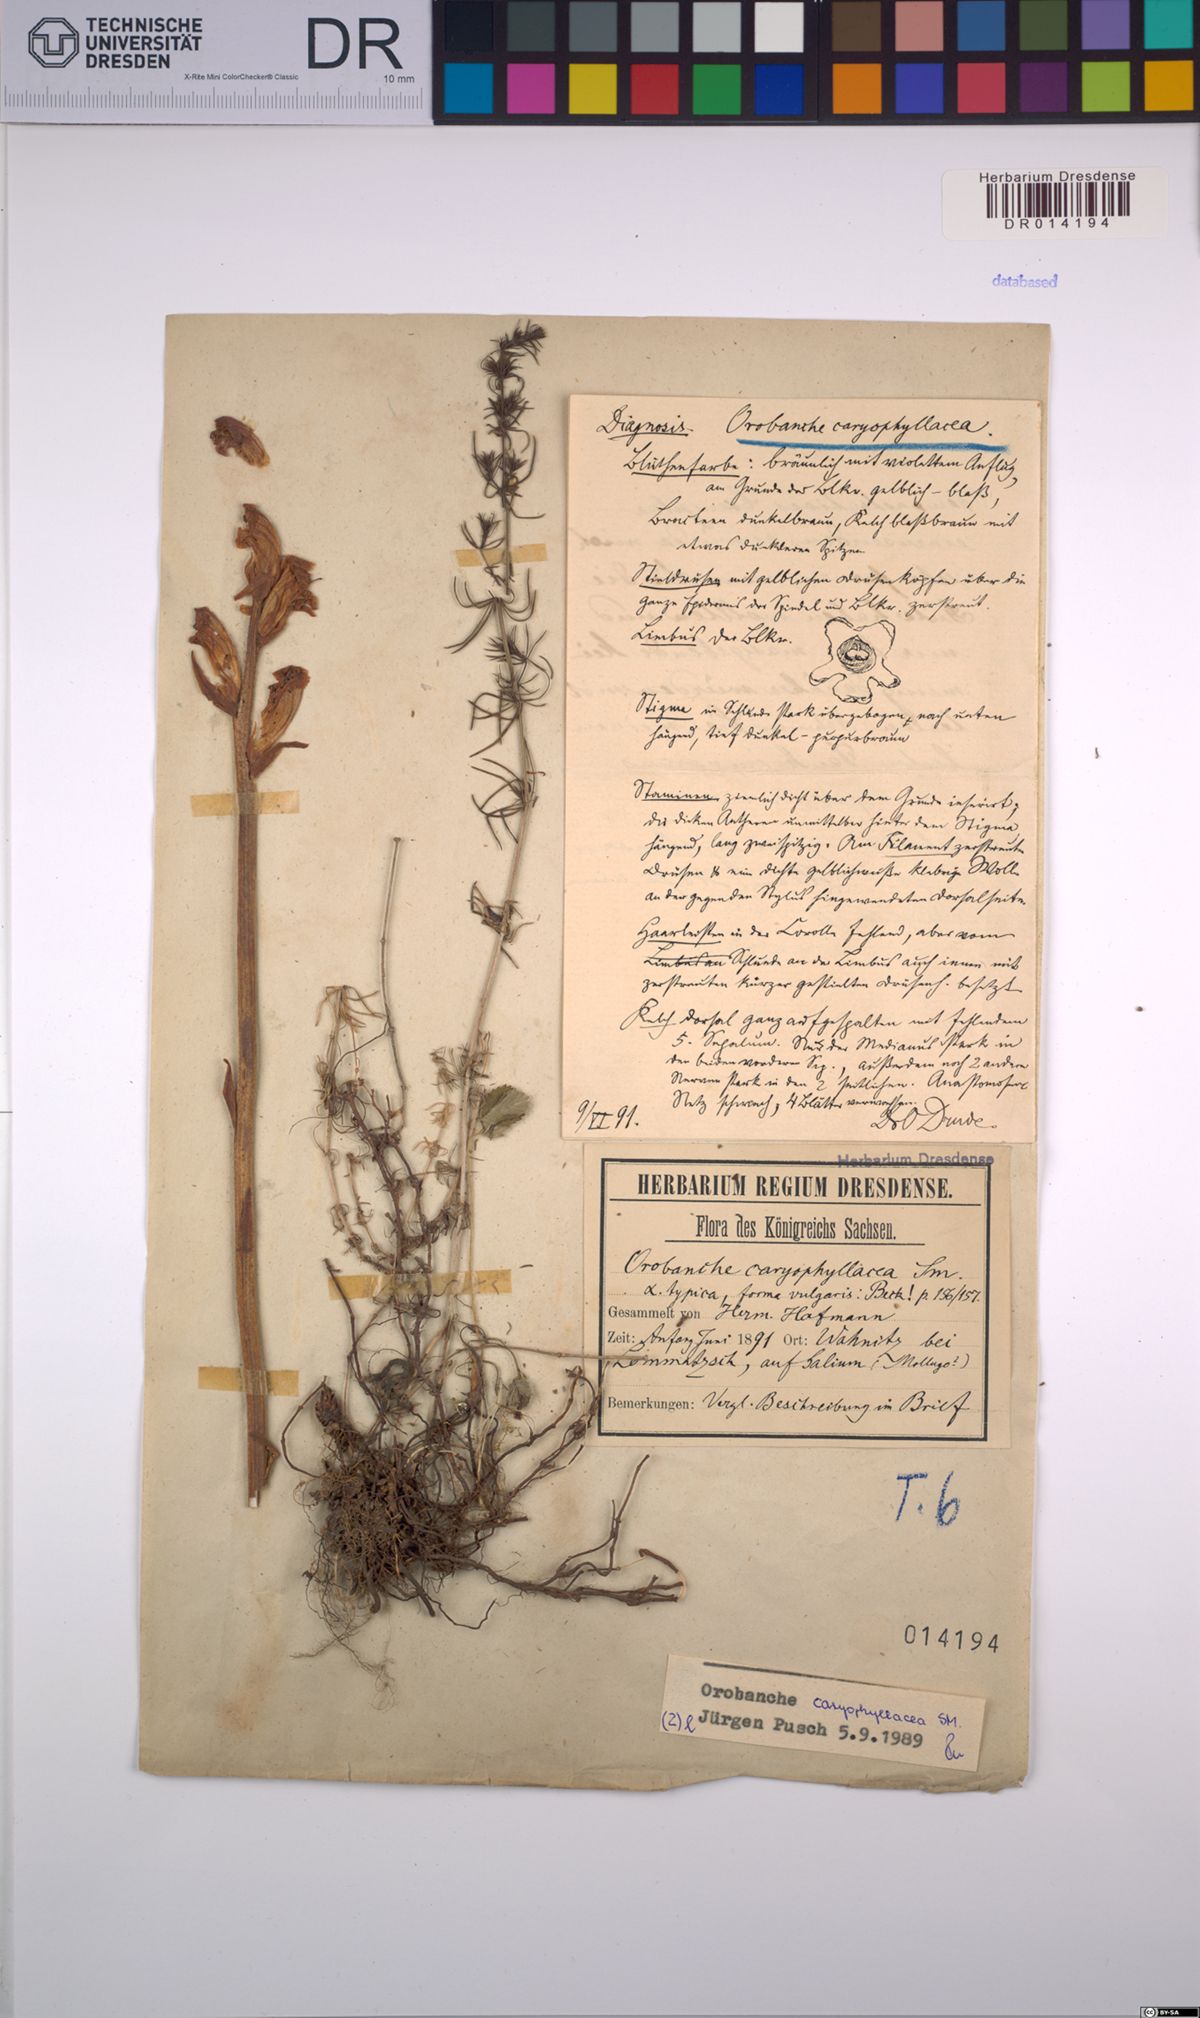 TECHNISCHE
UNIVERSITÄT
DRESDEN
DR
X-Rite Mini ColorChecker® Classic
10 mm
Herbarium Dresdense
DR014194
databased
Diagnosis. Orobanche caryophyllacea.
Blüthenfarbe: bräunlich mit violettem Anflug,
am Grunde der Blkr. gelblich-blaß,
Bracteen dunkelbraun, Kelch blaßbraun mit
etwas dunkleren Spitzen
Stieldrüsen mit gelblichen Drüsenköpfen über die
ganze Epidermis der Spindel und Blkr. zerstreut.
Limbus der Blkr.
Stigma im Schlunde stark übergebogen, nach unten
hängend, tief dunkel-purpurbraun
Staminen ziemlich dicht über dem Grunde inserirt;
die dicken Antheren unmittelbar hinter dem Stigma
hängend, lang zweispitzig. Am Filament zerstreute
Drüsen & eine dichte gelblichweiße klebrige Wolle
an der gegen den Stylus hingewendeten Dorsalseite.
Haarleisten in der Corolle fehlend, aber vom
Limbus an Schlunde an der Limbus auch innen mit
zerstreuten kürzer gestielten Drüsenh. besetzt
Kelch dorsal ganz aufgespalten mit fehlendem
5. Sepalum. Nur der Medianus stark in
den beiden vorderen Sep., außerdem noch 2 andere
Nerven stark in den 2 seitlichen. Anastomosen
Netz schwach, 4 Blätter verwachsen.
9/VI 91. Dr O Drude.
Herbarium Dresdense
HERBARIUM REGIUM DRESDENSE.
Flora des Königreichs Sachsen.
Orobanche caryophyllacea Sm.
α. typica, forma vulgaris: Beck! p. 156/157.
Gesammelt von Herm. Hofmann
Zeit: Anfang Juni 1891 Ort: Wahnitz bei
Lommatzsch, auf Galium (Mollugo?)
Bemerkungen: Vergl. Beschreibung in Brief
T. 6
014194
Orobanche caryophyllacea SM.
(2) l Jürgen Pusch 5.9.1989 Pu
BY-SA